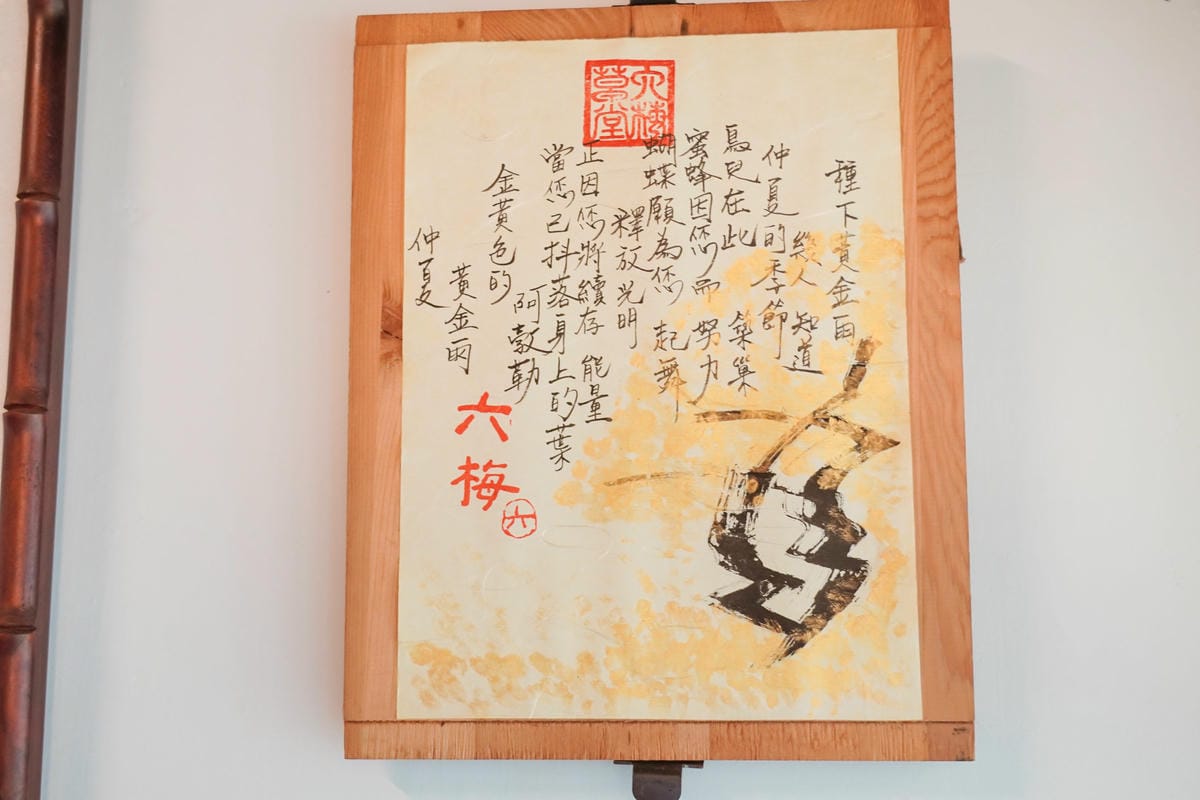 六梅草堂
種下黃金雨
幾人 知道
仲夏的季節
鳥兒在此 築巢
蜜蜂因您而 努力
蝴蝶願為您 起舞
釋放光明
正因您將續存 能量
當您已抖落身上的葉
阿勃勒
金黃色的
黃金雨
仲夏
六梅
六